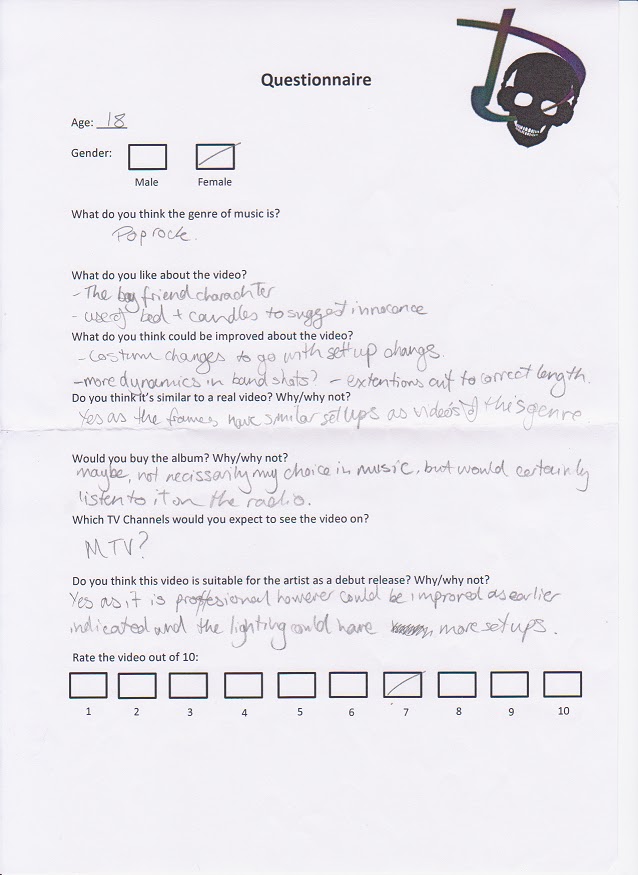 Questionnaire
Age: 18
Gender:
Male Female
What do you think the genre of music is?
Pop rock.
What do you like about the video?
- The boy friend charachter
- use of bed + candles to suggest innocence
What do you think could be improved about the video?
- Costum changes to go with set up changes.
- more dynamics in band shots? - extentions cut to correct length.
Do you think it's similar to a real video? Why/why not?
Yes as the frames have similar set ups as videos of this genre
Would you buy the album? Why/why not?
maybe, not necissarily my choice in music, but would certainly
listen to it on the radio.
Which TV Channels would you expect to see the video on?
MTV?
Do you think this video is suitable for the artist as a debut release? Why/why not?
Yes as it is proffesional however could be improved as earlier
indicated and the lighting could have more set ups.
Rate the video out of 10:
1 2 3 4 5 6 7 8 9 10